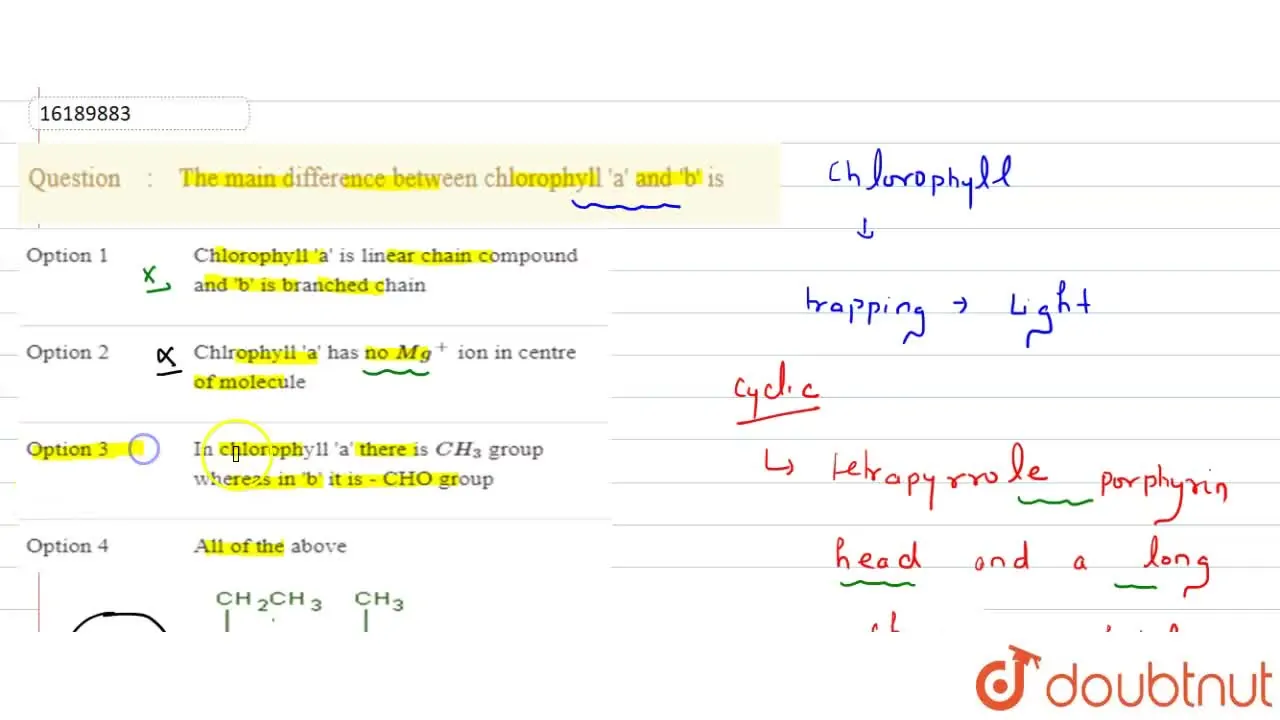 16189883
Question : The main difference between chlorophyll 'a' and 'b' is
Option 1 Chlorophyll 'a' is linear chain compound
and 'b' is branched chain
Option 2 Chlrophyll 'a' has no Mg⁺ ion in centre
of molecule
Option 3 In chlorophyll 'a' there is CH₃ group
whereas in 'b' it is - CHO group
Option 4 All of the above
CH₂CH₃ CH₃
Chlorophyll
↓
trapping → Light
cyclic
↳ tetrapyrrole porphyrin
head and a long
doubtnut